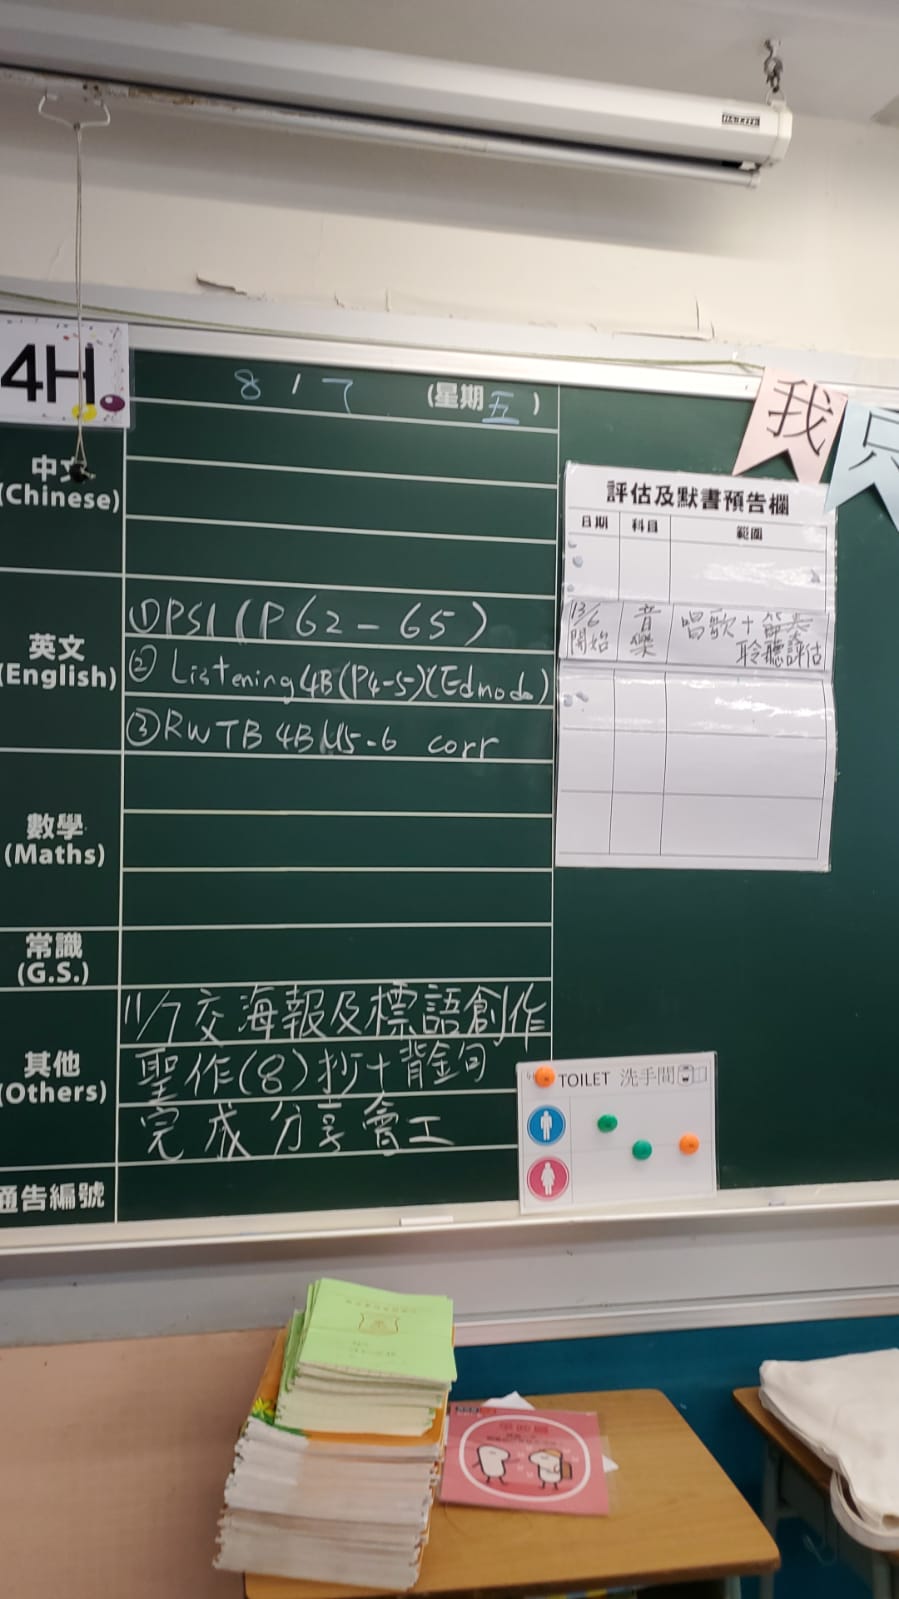 DA-LITE
4H
8 / 7 (星期五)
中文
(Chinese)
英文
(English)
①PS1(P62-65)
②Listening4B(P4-5)(Edmodo)
③RWTB 4BU5-6 corr
數學
(Maths)
常識
(G.S.)
其他
(Others)
11/7交海報及標語創作
聖作(8)抄+背金句
完成分享會工
通告編號
我
只
評估及默書預告欄
日期 科目 範圍
13/6開始 音樂 唱歌+笛奏
聆聽評估
TOILET 洗手間